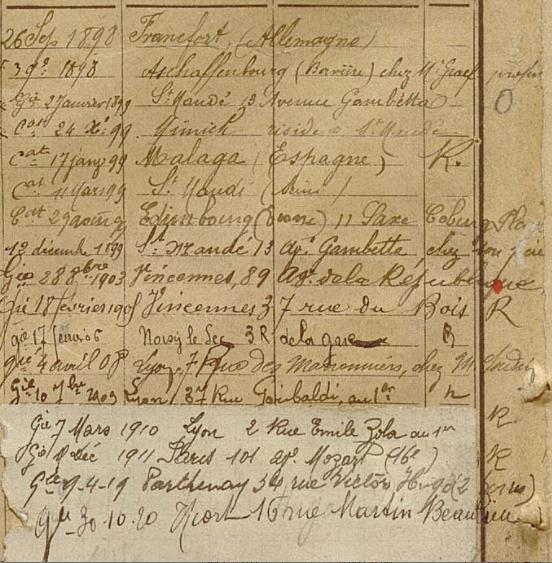 26 Sep 1898 Francfort, (Allemagne)
3 9bre 1898 Aschaffenbourg (Bavière) chez Mr Graef
Gie 27 janvier 1899 St Mandé 13 Avenue Gambetta
Cat 24 Xe 99 Munich réside à St Mandé
Cat 17 janv 99 Malaga (Espagne) R.
Cat 11 Mars 99 St Mandé (Seine)
Cat 29 Edimbourg (Ecosse) 11 Saxe Cobourg Pla
12 décemb 1899 St Mandé 13 av. Gambetta chez son père
Gie 28 8bre 1903 Vincennes, 89 av. de la République
Gie 18 février 1905 Vincennes 37 rue du Bois R
gie 17 janv 06 Noisy le Sec 3 R de la gare R
gie 4 avril 08 Lyon, 7 Rue des Maronniers, chez M.
Gie 10 7bre 1909 Lyon 37 Rue Garibaldi, au 1er R
Gie 7 Mars 1910 Lyon 2 Rue Emile Zola au 1er R
Gie 8 Déc 1911 Paris 101 av. Mozart (16e) R
Gie 9-4-19 Parthenay 34 rue Victor Hugo (2 Sèvres)
Gie 30-10-20 Niort 16 rue Martin Beaulieu